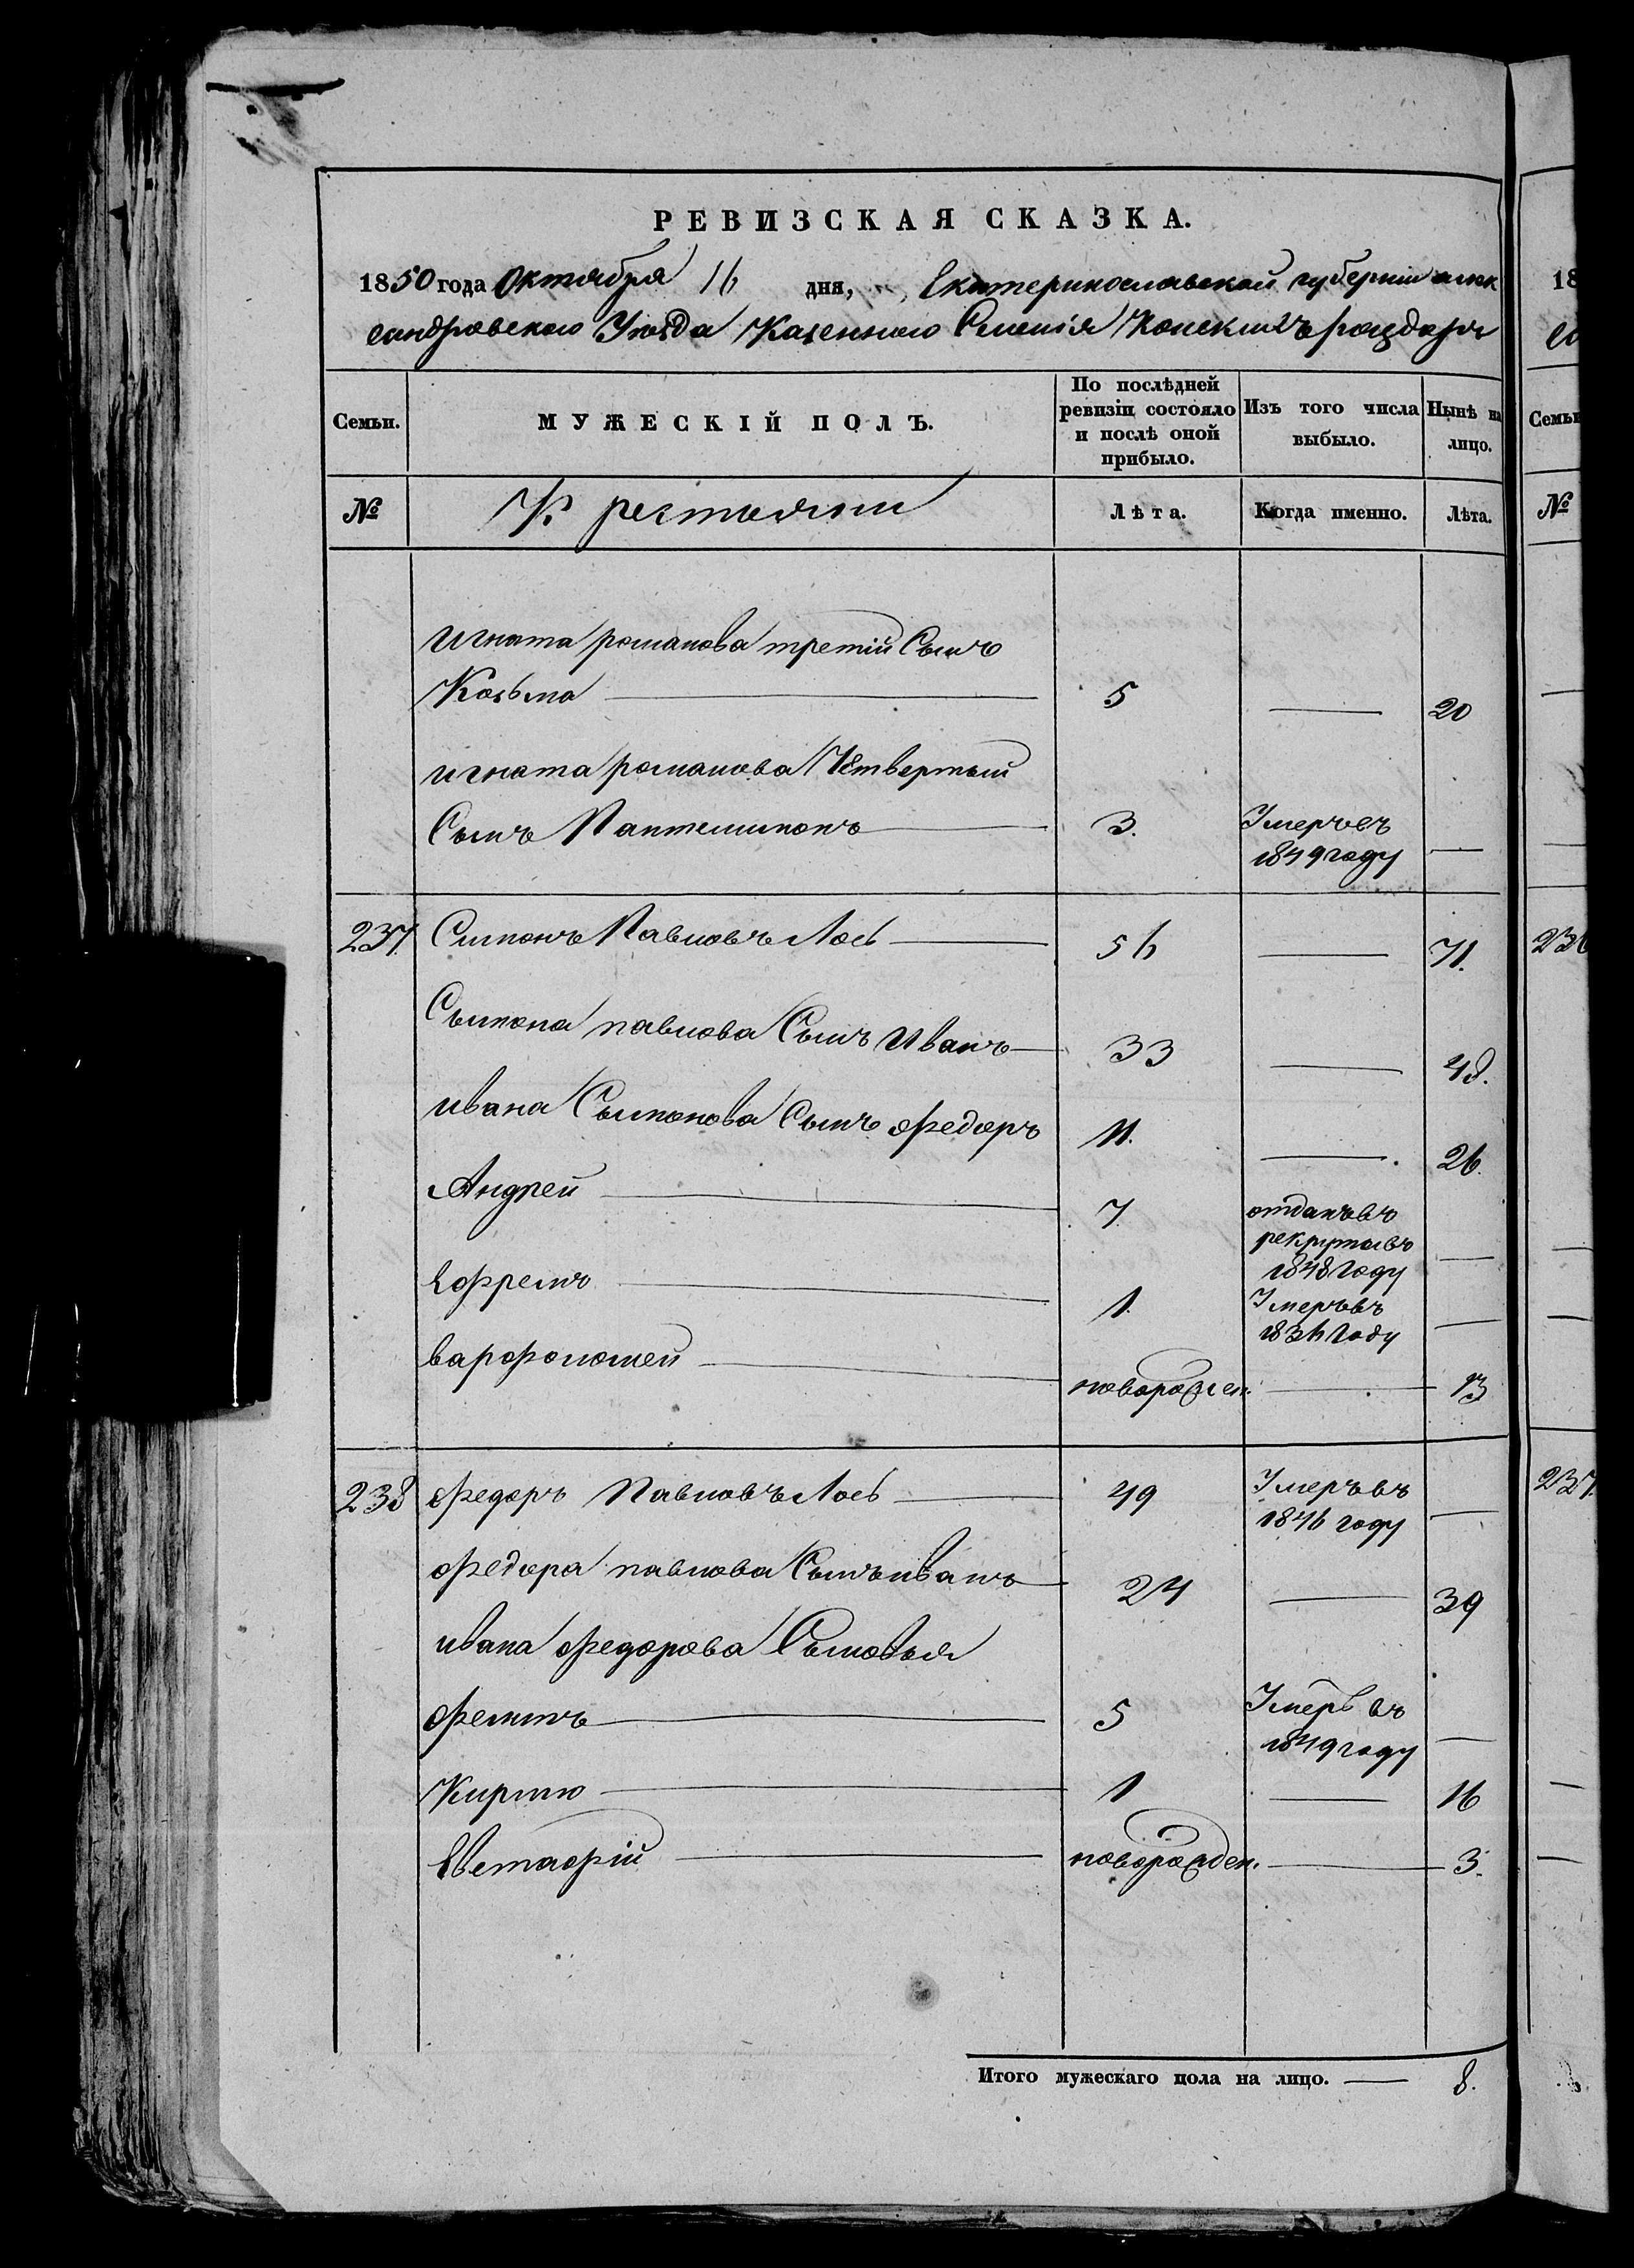 РЕВИЗСКАЯ СКАЗКА.
1850 года Октября 16 дня, Екатеринославской губернии алек
сандровского Уезда Казенного Селенія Конскихъ роздоръ
Семьи.
МУЖЕСКІЙ ПОЛЪ.
По послѣдней ревизіи состояло и послѣ оной прибыло.
Изъ того числа выбыло.
Нынѣ на лицо.
№
Крестьяни
Лѣта.
Когда именно.
Лѣта.
игната романова третій Сынъ
Козьма 5 20
игната романова Четвертый
Сынъ Пантелимонъ 3. Умеръ въ 1849 году
237 Симонъ Павловъ Лось 56 71.
Сымона павлова Сынъ Иванъ 33 48.
ивана Сымонова Сынъ федоръ 11. 26.
Андрей 7. отданъ въ рекруты въ 1848 году
Ефремъ 1. Умеръ въ 1836 году
варфоломей новорожден. 13
238 федоръ Павловъ Лось 49 Умеръ въ 1846 году
федора павлова Сынъ иванъ 24 39
ивана федорова Сыновья
филипъ 5 Умеръ въ 1849 году
Кирило 1 16
Евстафій новорожден. 3.
Итого мужескаго пола на лицо. 8.
18
Семьи
№
237.